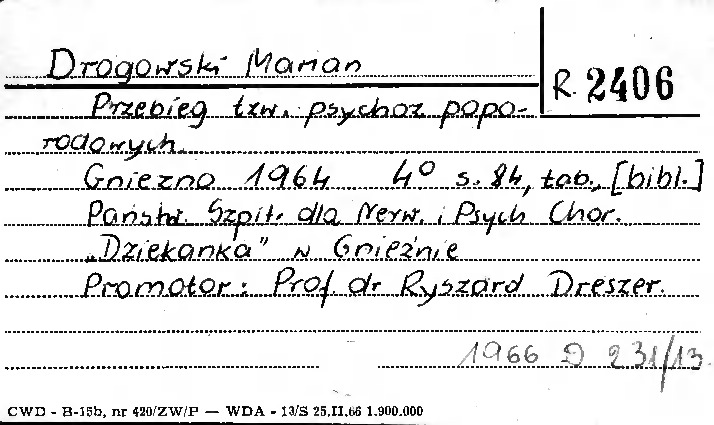 Drogowski Marian
R. 2406
Przebieg tzw. psychoz popo-
rodowych.
Gniezno 1964 4° s. 84, tab., [bibl.]
Państw. Szpit. dla Nerw. i Psych Chor.
„Dziekanka" w Gnieźnie
Promotor: Prof. dr Ryszard Dreszer.
1966 D 231/13
CWD - B-15b, nr 420/ZW/P — WDA - 13/S 25.II.66 1.900.000